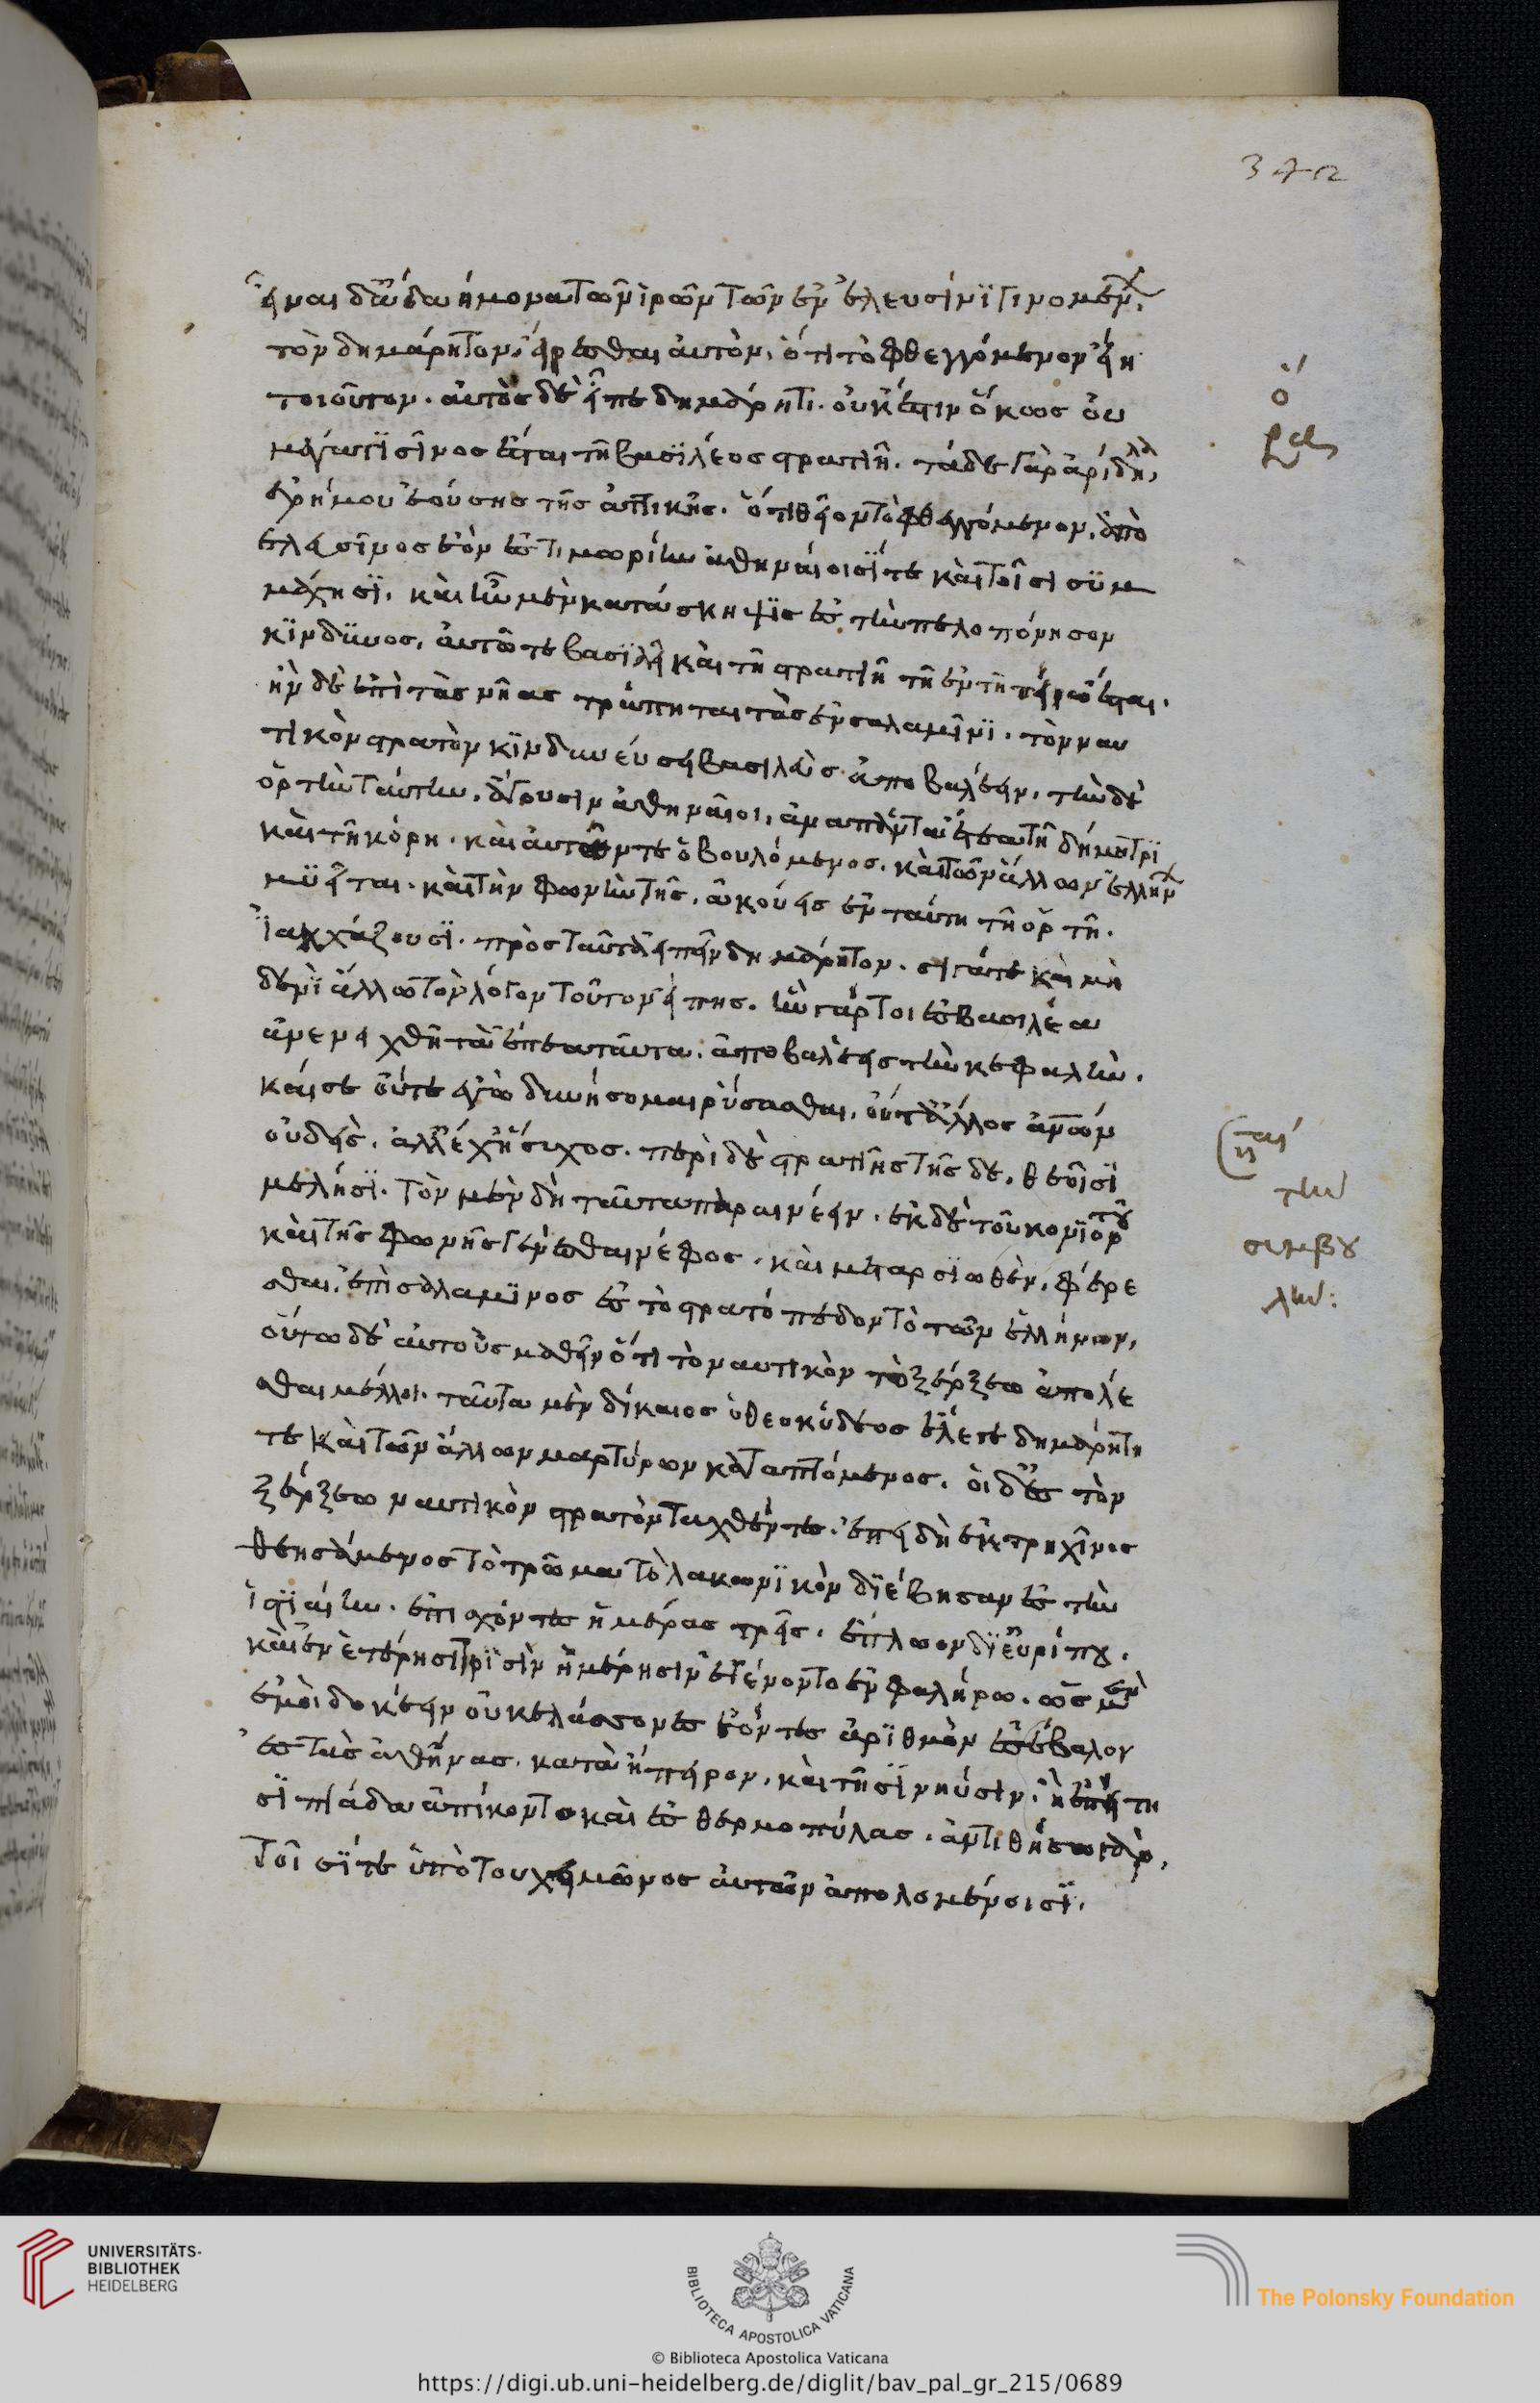 342
εἶναι δ' ἀδαήμονα τῶν ἱρῶν τῶν ἐν ἐλευσῖνι γινομένων.
τὸν δημάρητον, εἴρεσθαι αὐτὸν, ὅτι τὸ φθεγγόμενον εἴη
τοιοῦτον. αὐτὸς δὲ εἶπε δημάρητε. οὐκ ἔστιν ὅκως οὐ
μέγα τι σῖνος ἔσται τῆ βασιλέος στρατιῆ. τάδε γὰρ ἀρίδηλα,
ἐρήμου ἐούσης τῆς ἀττικῆς. ὅτι θεῖον τὸ φθεγγόμενον, ἀπὸ
ἐλευσῖνος ἰὸν ἐς τιμωρίην ἀθηναίοισί τε καὶ τοῖσι συμ
μάχοισι. καὶ ἢν μὲν κατασκήψη ἐς τὴν πελοπόννησον
κίνδυνος, αὐτῶ τε βασιλεῖ καὶ τῆ στρατιῆ τῆ ἐν τῆ ἠπείρω ἔσται.
ἢν δὲ ἐπὶ τὰς νῆας τράπηται τὰς ἐν σαλαμῖνι. τὸν ναυ
τικὸν στρατὸν κινδυνεύσει βασιλεὺς ἀποβαλέειν. τὴν δὲ
ὁρτὴν ταύτην, ἄγουσιν ἀθηναῖοι, ἀνὰ πάντα ἔτεα τῆ δήμητρι
καὶ τῆ κόρη. καὶ αὐτῶν τε ὁ βουλόμενος. καὶ τῶν ἄλλων ἑλλήνων
μυεῖται. καὶ τὴν φωνὴν τῆς ἀκούεις ἐν ταύτη τῆ ὁρτῆ.
ἰακχάζουσι. πρὸς ταῦτα εἰπεῖν δημάρητον. σίγα τε καὶ μη
δενὶ ἄλλω τὸν λόγον τοῦτον εἴπης. ἢν γάρ τοι ἐς βασιλέα
ἀνενειχθῆ τὰ ἔπεα ταῦτα. ἀποβαλέεις τὴν κεφαλήν.
καί σε οὔτε ἐγὼ δυνήσομαι ῥύσασθαι, οὔτ' ἄλλος ἀνθρώπων
οὐδεὶς. ἀλλ' ἔχ' ἥσυχος. περὶ δὲ στρατιῆς τῆσδε, θεοῖσι
μελήσει. τὸν μὲν δὴ ταῦτα παραινέειν. ἐκ δὲ τοῦ κονιορτοῦ
καὶ τῆς φωνῆς γενέσθαι νέφος. καὶ μεταρσιωθὲν, φέρε
σθαι, ἐπὶ σαλαμῖνος ἐς τὸ στρατόπεδον τὸ τῶν ἑλλήνων.
οὕτω δὲ αὐτοὺς μαθεῖν ὅτι τὸ ναυτικὸν τὸ ξέρξεω ἀπολέε
σθαι μέλλοι. ταῦτα μὲν δίκαιος ὁ θεοκύδεος ἔλεγε δημαρήτου
τε καὶ τῶν ἄλλων μαρτύρων καταπτόμενος. οἱ δ' ἐς τὸν
ξέρξεω ναυτικὸν στρατὸν ταχθέντες. ἐπειδὴ ἐκ τρηχῖνος
θεησάμενοι τὸ τρῶμα τὸ λακωνικὸν διέβησαν ἐς τὴν
ἱστιαίην. ἐπισχόντες ἡμέρας τρεῖς. ἔπλωον δι' εὐρίπου.
καὶ ἐν ἑτέρησι τρισὶν ἡμέρησιν ἐγένοντο ἐν φαλήρω. ὡς μὲν
ἐμοὶ δοκέειν οὐκ ἐλάσσονες ἐόντες ἀριθμὸν ἐσέβαλον
ἐς τὰς ἀθήνας. κατὰ ἤπειρον. καὶ τῆσι νηυσὶν. ἢ ἐπεί τε
σηπιάδα ἀπίκοντο καὶ ἐς θερμοπύλας. ἀντιθήσω γὰρ,
τοῖσί τε ὑπὸ τοῦ χειμῶνος αὐτῶν ἀπολομένοισι.
ταύ
την
συμβου
λήν:
UNIVERSITÄTS-
BIBLIOTHEK
HEIDELBERG
BIBLIOTECA APOSTOLICA VATICANA
The Polonsky Foundation
© Biblioteca Apostolica Vaticana
https://digi.ub.uni-heidelberg.de/diglit/bav_pal_gr_215/0689